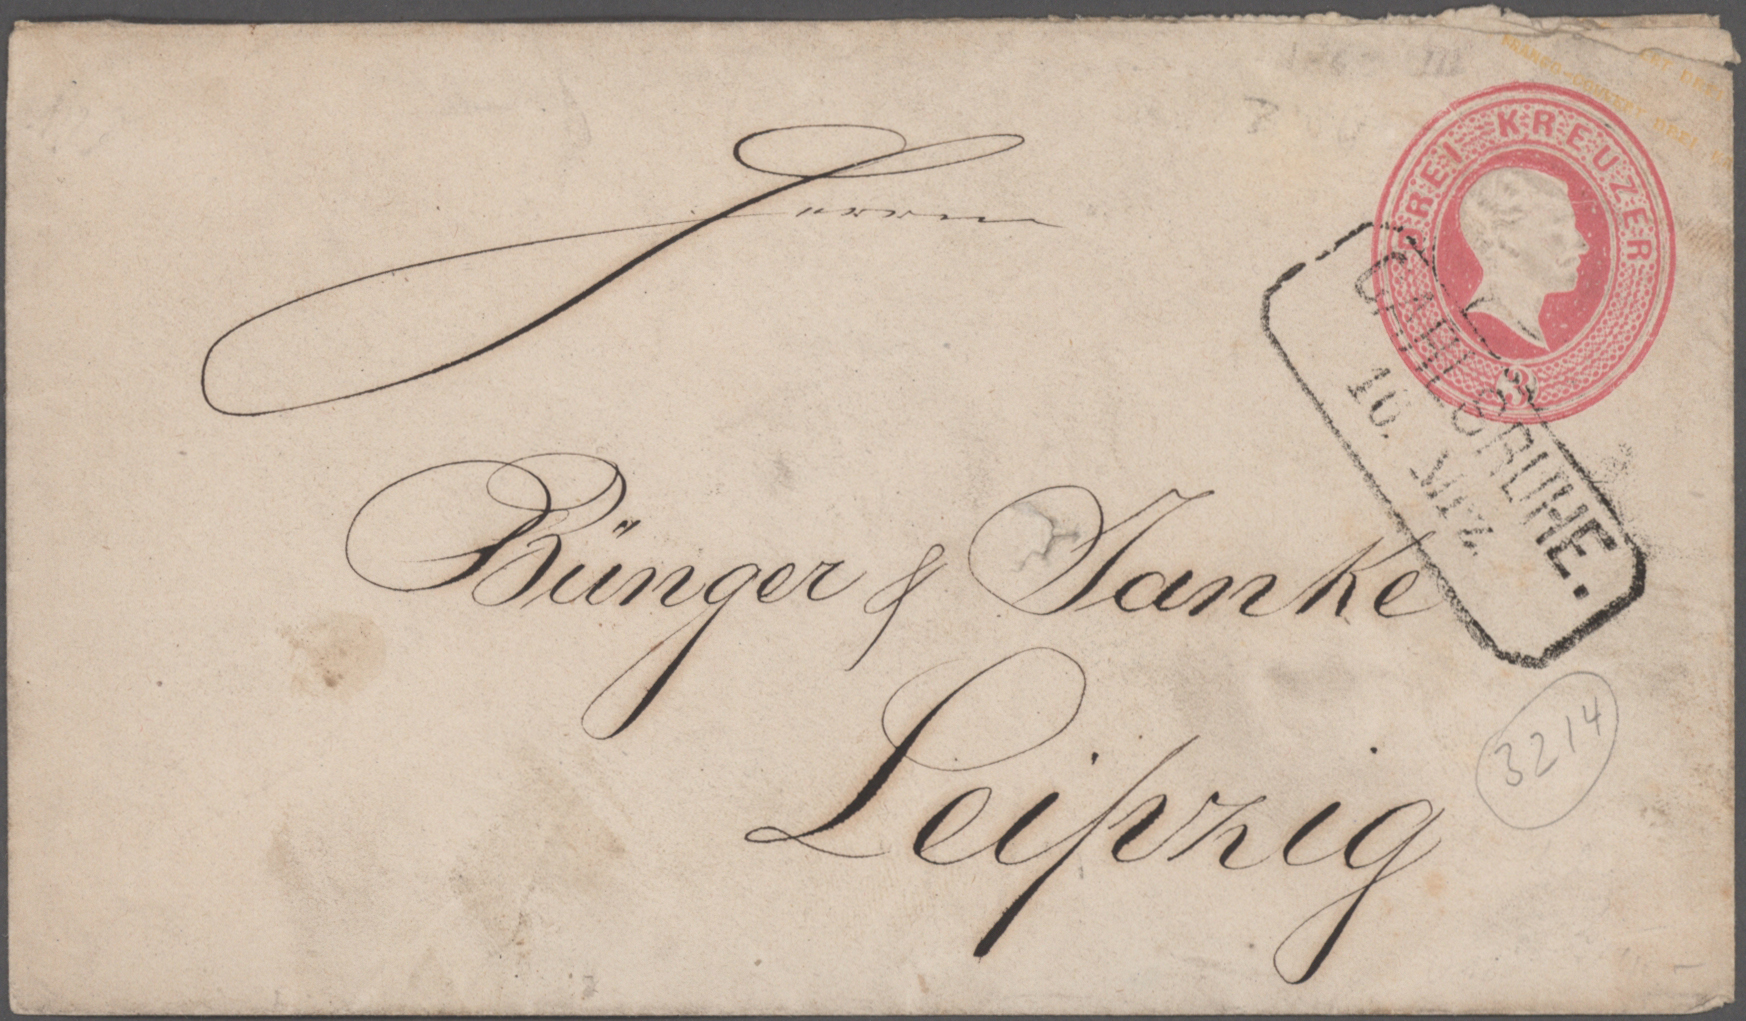 FRANCO-COUVERT DREI
DREI KREUZER
3
Herrn
CARLSRUHE.
10. Mrz.
Bünger & Janke
Leipzig
3214